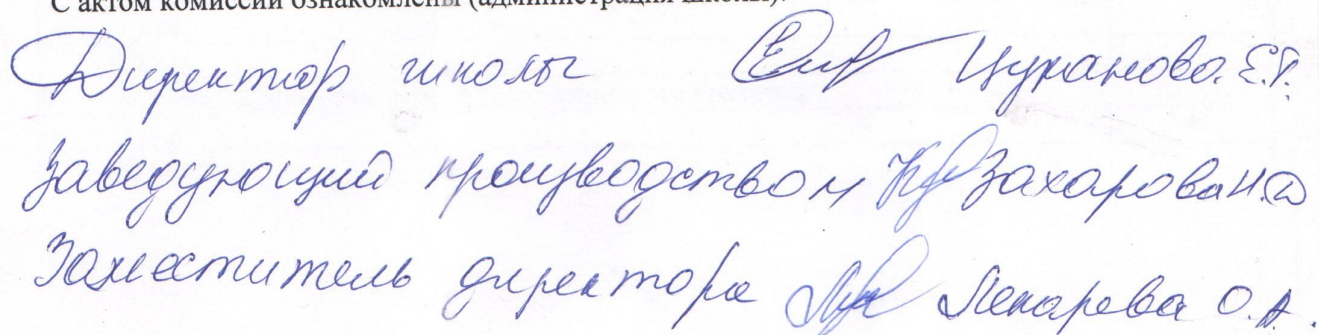 С актом комиссии ознакомлены (администрация школы):
Директор школы Цуранова Е.Г.
Заведующий производством Захарова Н.Ю
Заместитель директора Пекарева О.А.